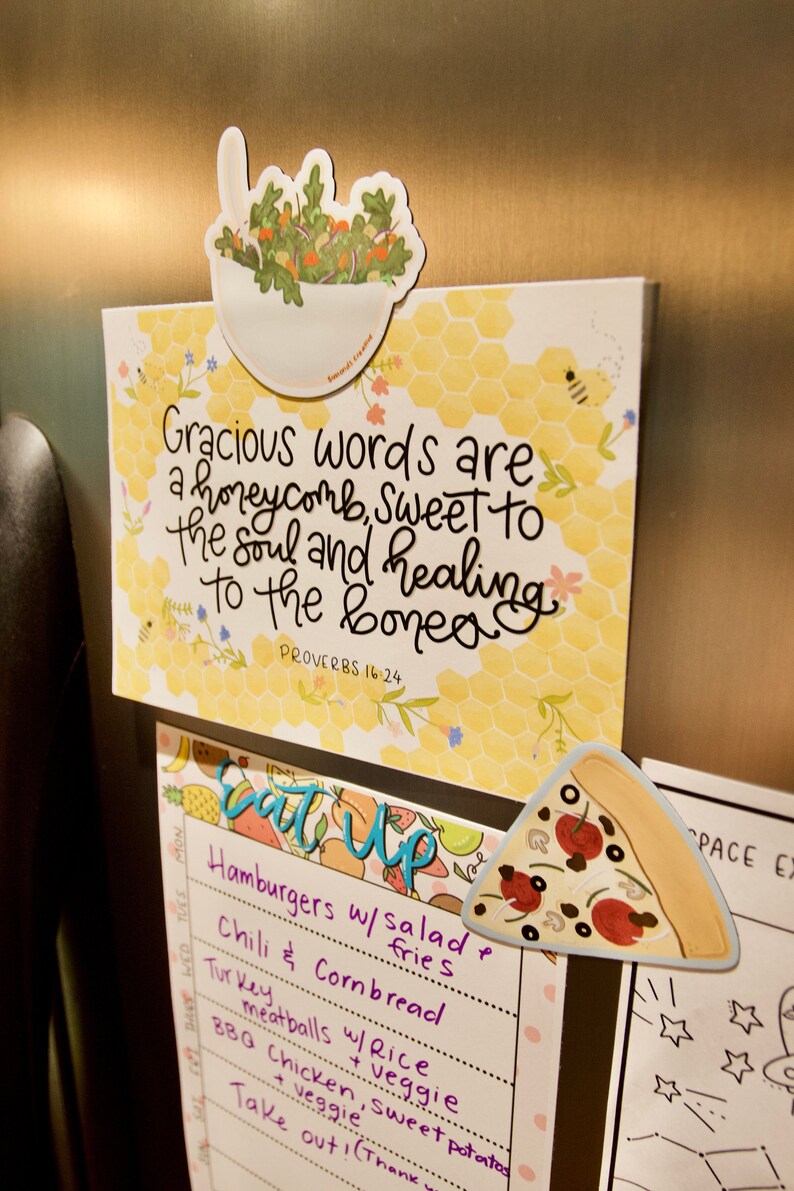 Simonds Creative
Gracious words are
a honeycomb, sweet to
the soul and healing
to the bones
PROVERBS 16:24
eat up
MON
Hamburgers w/ salad &
fries
TUES
Chili & Cornbread
WED
Turkey
meatballs w/ Rice
+ veggie
THURS
BBQ Chicken, sweet potatos
+ veggie
FRI
Take out! (Thank
SAT
SUN
SPACE EX